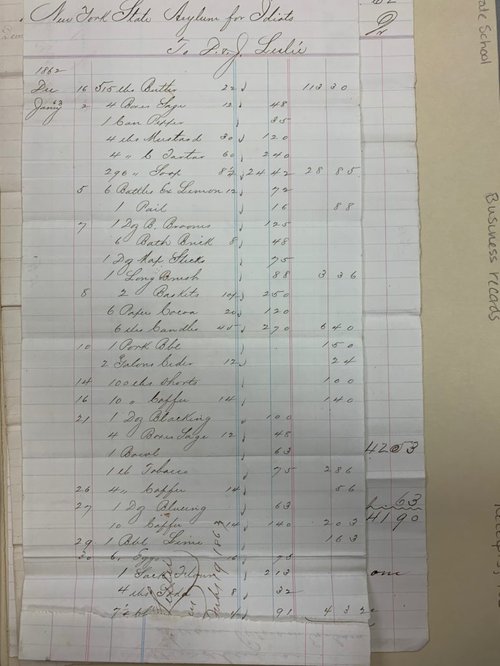 New York State Asylum for Idiots
To D. & J. Leslie
1862
Dec 16 515 lbs Butter 22 113 30
Jany 63 2 4 Boxes Sage 12 48
1 Can Pepper 35
4 lbs Mustard 30 120
4 " C Tartar 60 240
296 " Soap 8¼ 24 42 28 85
5 6 Bottles Ex Lemon 12 72
1 Pail 16 88
7 1 Dz B. Brooms 125
6 Bath Brick 8 48
1 Dz Sticks 75
1 Long Brush 88 3 36
8 2 Baskets 10/ 250
6 Paper Cocoa 20 120
6 lbs Candles 45 270 640
10 1 Pork Bbl 150
2 Galons Cider 12 24
14 100 lbs Shorts 100
16 10 " Coffee 14 140
21 1 Dz Blacking 100
4 Boxes Sage 12 48
1 Bowl 63
1 lb Tobacco 75 286
26 4 " Coffee 14 56
27 1 Dz Blueing 63
10 Coffee 14 140 203
29 1 Bbl Lime 163
30 6 Eggs 78
1 Sack Flour 213
4 lbs 8 32
91 4 3
1863
Dr
42 53
63
41 90
ate School
Business records